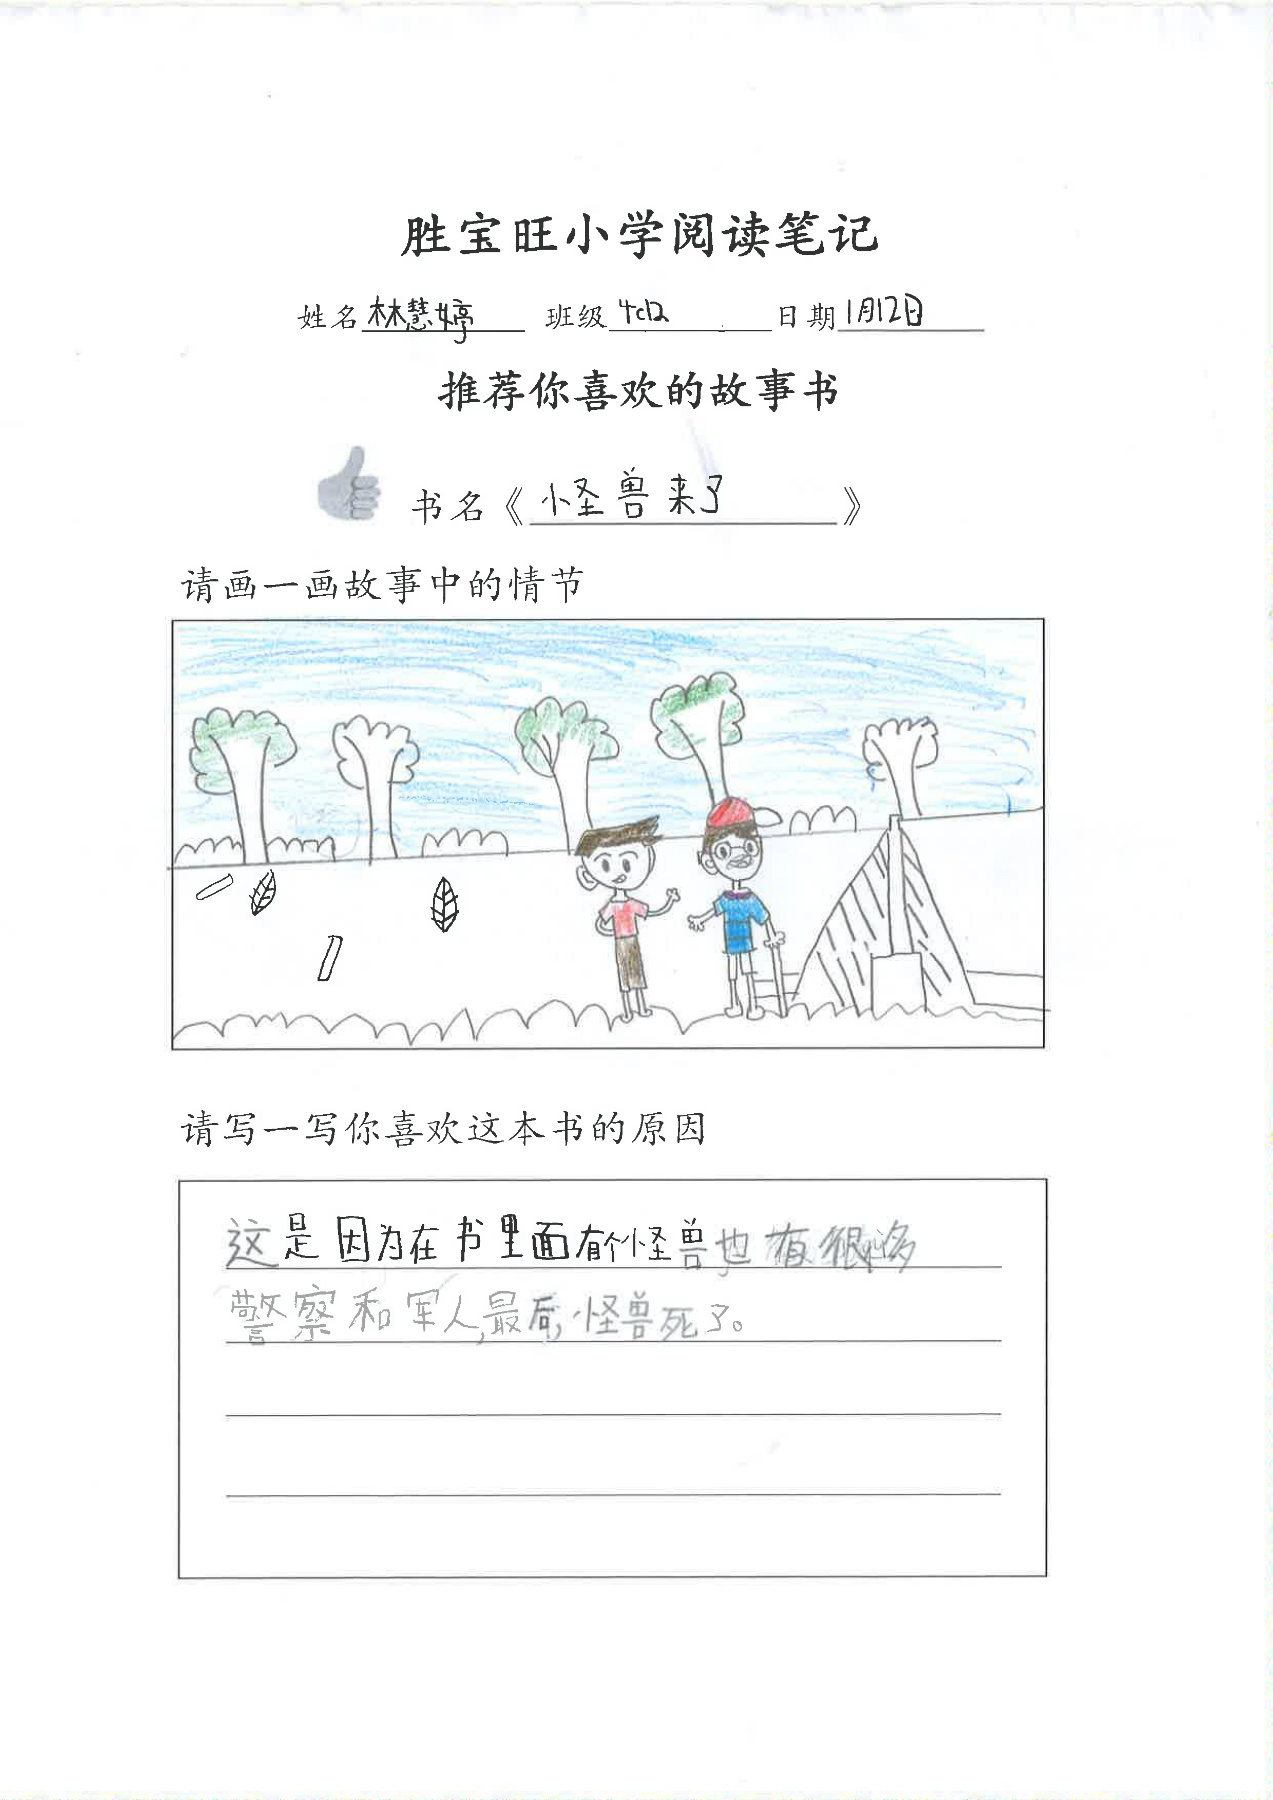 胜宝旺小学阅读笔记
姓名 林慧婷 班级 4CL2 日期 1月12日
推荐你喜欢的故事书
书名《怪兽来了》
请画一画故事中的情节
请写一写你喜欢这本书的原因
这是因为在书里面有个怪兽也有很多
警察和军人,最后,怪兽死了。